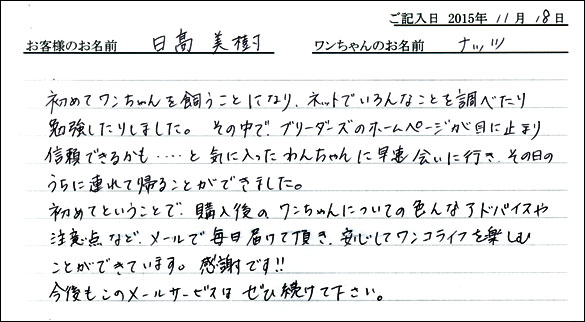 ご記入日 2015年 11月 18日
お客様のお名前 日高 美樹 ワンちゃんのお名前 ナッツ
初めてワンちゃんを飼うことになり、ネットでいろんなことを調べたり
勉強したりしました。 その中で、ブリーダーズのホームページが目に止まり
信頼できるかも……と 気に入ったわんちゃんに早速会いに行き、その日の
うちに連れて帰ることができました。
初めてということで、購入後のワンちゃんについての色んなアドバイスや
注意点など、メールで毎日届けて頂き、安心してワンコライフを楽しむ
ことができています。感謝です!!
今後もこのメールサービスは ぜひ続けて下さい。